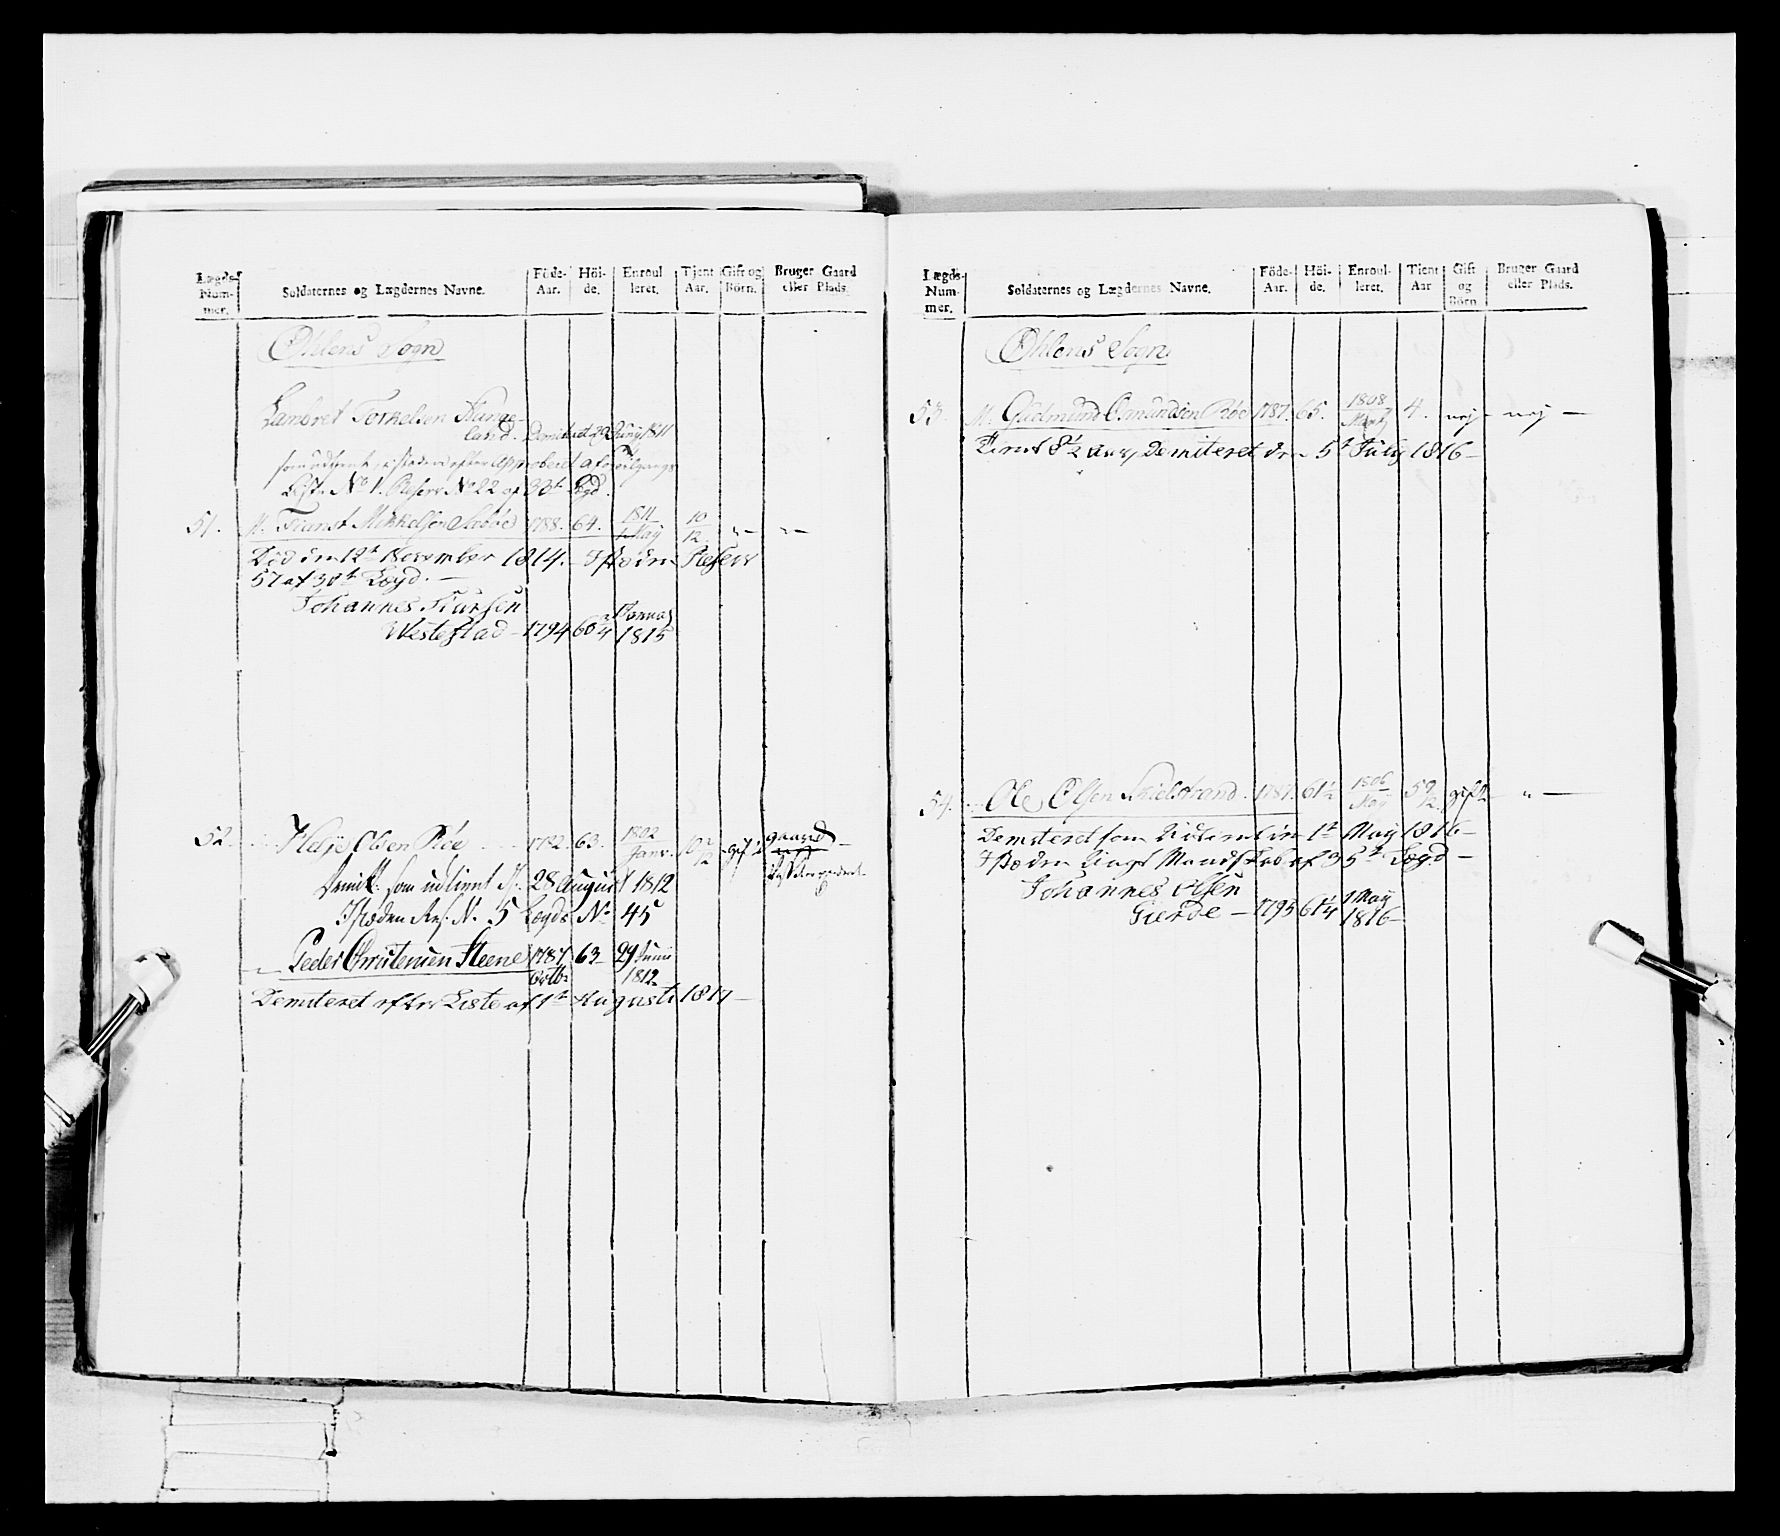 Lægds-Num-mer. Soldaternes og Lægdernes Navne. Föde-Aar. Höi-de. Enroul leret. Tjent Aar. Gift og Börn. Bruger Gaard eller Plads.
Ohlens Sogn
Lambret Torkelsen Hauge-
land. Demiteret 29 Junij 1811
som udtjent, istæden efter Approberet afgangs
Liste No 1. Reserv No 22 af 33t Lægd.
51. M. Tianst Mikkelsen Søeböe 1788. 64. 1811 1 Maij 10/12 "- "-
Död den 12t November 1814. Istæden Reserv
57 af 38t Lægd. -
Johannes Siursen
Westestad - 1794 60 3/4 Januarj 1815
52. Helje Olsen Röe 1782. 63. 1802 Janv. 10 2/12 gift gaard
Demitt. som udtient 28 August 1812
Istæden Res. N. 5 Legds No 45
Peder Christensen Steene 1787 63 29 Junii
Octb. 1812
Demiteret efter Liste af 1t Augusti 1817 -
Lægds-Num-mer. Soldaternes og Lægdernes Navne. Föde-Aar. Höi-de. Enroul-leret. Tient Aar Gift og Börn Bruger Gaard eller Plads.
Ohlens Sogn
53. M. Gudmund Osmundsen Röe 1787. 65. 1808 Martj 4. nej - nej -
Tient 8 1/2 Aar, Demiteret den 5t Julij 1816 -
54. Ole Olsen Skielstrand. 1787. 61 1/2 1806 Maij 5 9/12 gift " -
Demiteret som Udtient den 1t Maij 1816 -
Istæden Ungt Mandskab af 35t Lægd -
Johannes Olsen
Gierde - 1795 61 1/4 1 Maij 1816 -